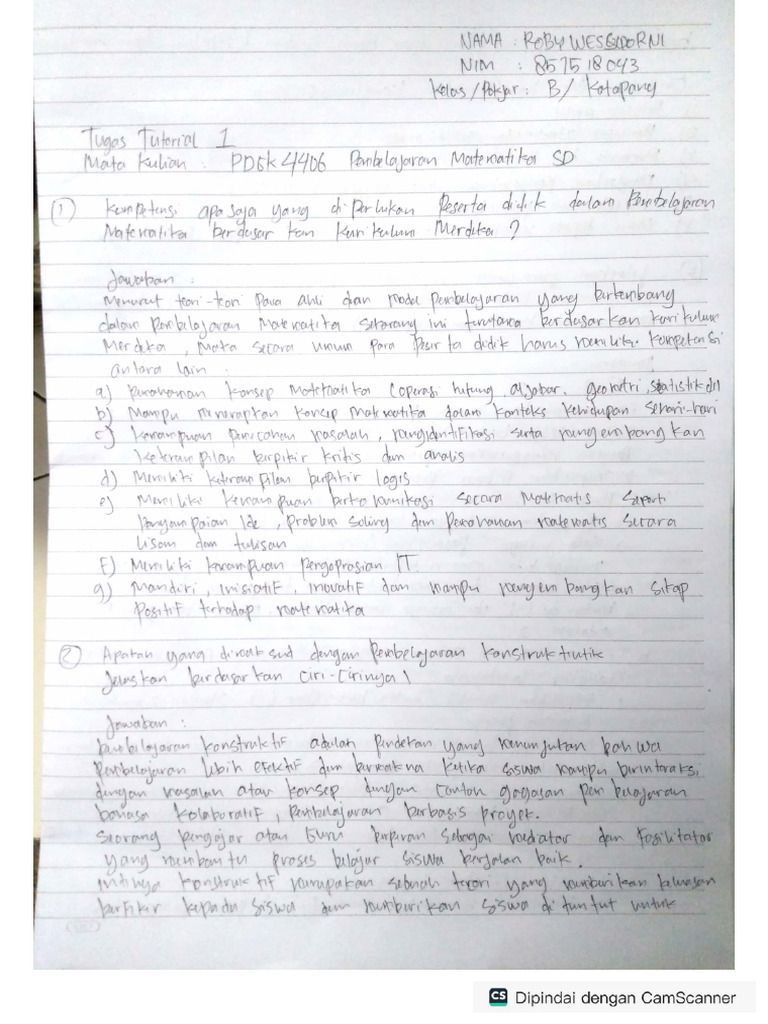 NAMA : ROBY WESGIDORNI
NIM : 857518043
Kelas/Pokjar : B/ Katapang
Tugas Tutorial 1
Mata Kuliah : PDGK4406 Pembelajaran Matematika SD
① Kompetensi apa saja yang diperlukan Peserta didik dalam Pembelajaran
Matematika berdasarkan Kurikulum Merdeka ?
Jawaban :
Menurut teori-teori Para ahli dan model pembelajaran yang berkembang
dalam Pembelajaran Matematika sekarang ini terutama berdasarkan kurikulum
Merdeka, Maka secara umum para peserta didik harus memiliki Kompetensi
antara lain :
a) Pemahaman Konsep Matematika (operasi hitung, aljabar, geometri, statistik dll
b) Mampu menerapkan konsep Matematika dalam konteks kehidupan sehari-hari
c) Kemampuan pemecahan masalah, mengidentifikasi serta mengembangkan
keterampilan berpikir kritis dan analis
d) Memiliki keterampilan berpikir logis
e) Memiliki kemampuan berkomunikasi secara Matematis seperti
Penyampaian Ide, problem solving dan Pemahaman matematis secara
lisan dan tulisan
F) Memiliki kemampuan pengoprasian IT.
g) Mandiri, inisiatif, inovatif dan mampu mengembangkan sikap
Positif terhadap matematika
② Apakah yang dimaksud dengan Pembelajaran Konstruktivtik
Jelaskan berdasarkan ciri-cirinya !
Jawaban :
Pembelajaran konstruktif adalah pendekan yang menunjukan bahwa
Pembelajaran lebih efektif dan bermakna ketika siswa mampu berinteraksi
dengan masalah atau konsep dengan contoh gagasan pembelajaran
bahasa kolaboratif, pembelajaran berbasis proyek.
Seorang pengajar atau Guru berperan sebagai mediator dan fasilitator
yang membantu proses belajar siswa berjalan baik.
Intinya konstruktif merupakan sebuah teori yang memberikan keluasan
berfikir kepada siswa dan memberikan siswa di tuntut untuk
CS Dipindai dengan CamScanner